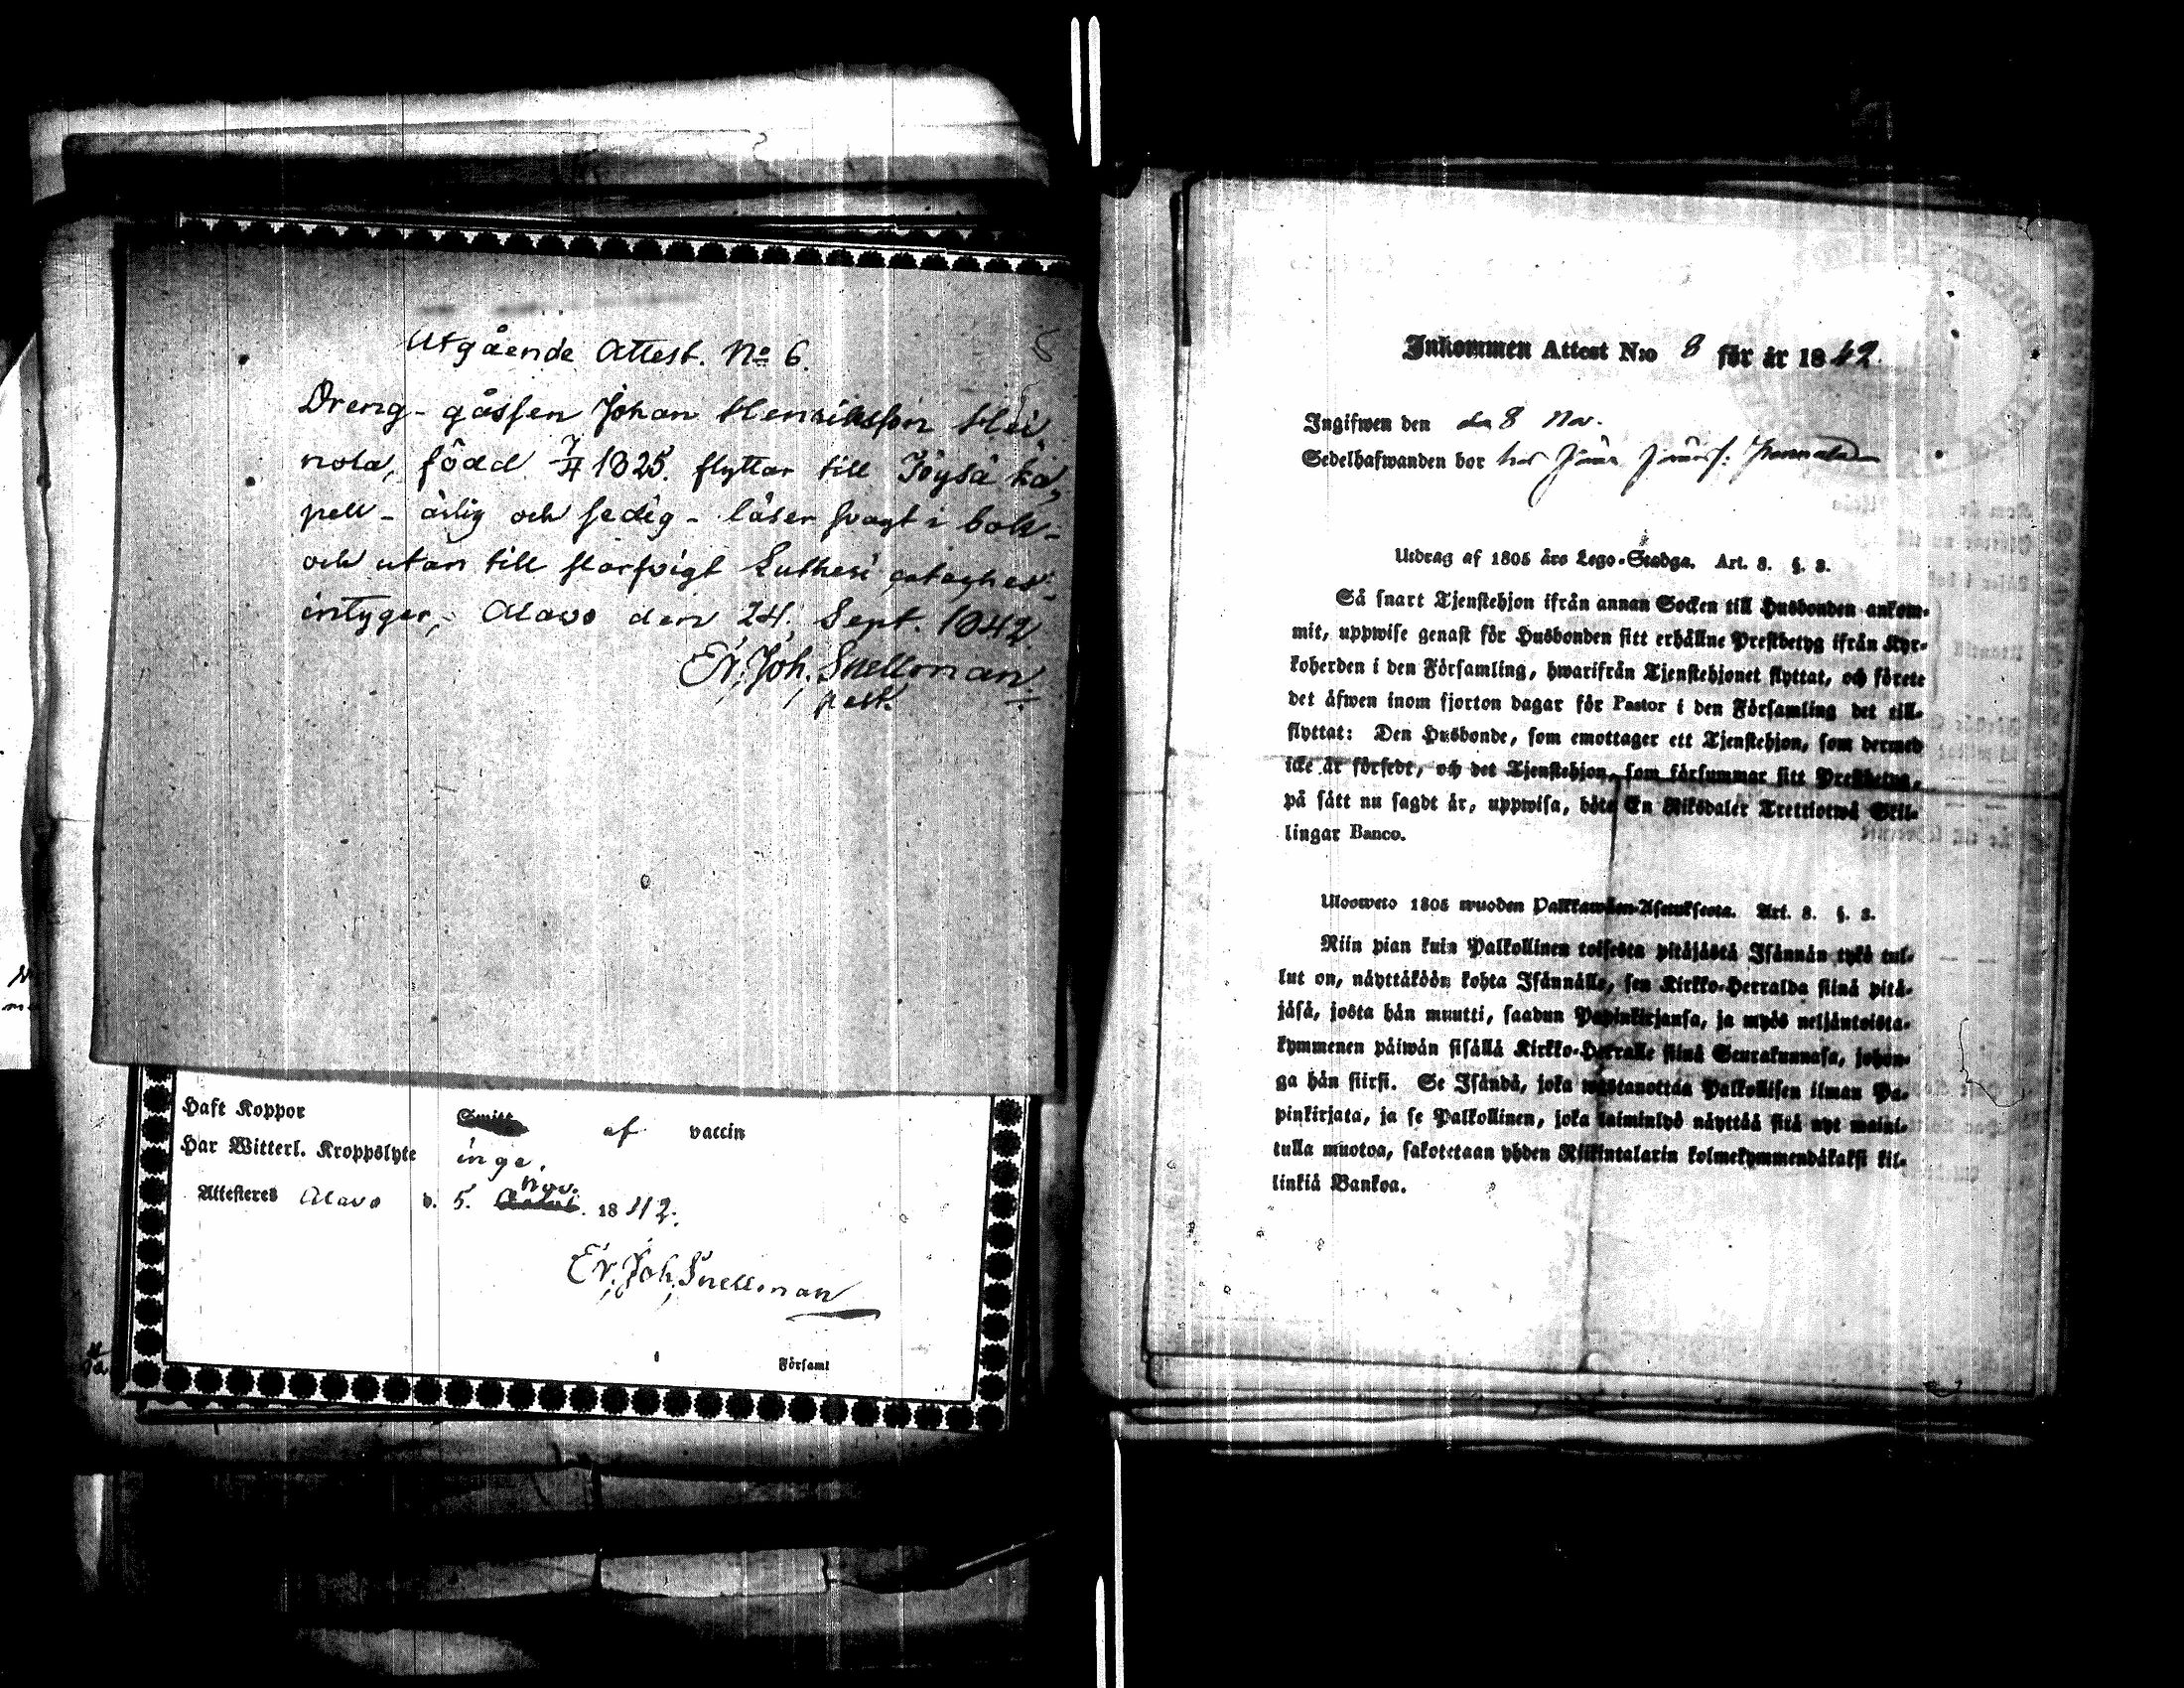 Utgående Attest. No 6.
Dreng-gåssen Johan Henriksson Hei-
nola, född 7/4 1825. flyttar till Töysä ka,
pell - ärlig och sedig - läser svagt i bok-
och utan till
intyger, Alavo den 24. Sept. 1842.
Er. Joh. Snellman
past.
Haft Koppor af vaccin
Har Witterl. Kroppslyte inga.
Attesteres Alavo d. 5. Nov. 1842.
Er. Joh. Snellman
Församl
Inkommen Attest N:o 8 för år 1842.
Ingifwen den 8 Nov.
Sedelhafwanden bor hos
Utdrag af 1805 års Lego-Stadga. Art. 8. §. 3.
Så snart Tjenstehjon ifrån annan Socken till Husbonden ankom-
mit, uppwise genast för Husbonden sitt erhållne Prestbetyg ifrån Kyr-
koherden i den Församling, hwarifrån Tjenstehjonet flyttat, och förete
det äfwen inom fjorton dagar för Pastor i den Församling det till-
flyttat: Den Husbonde, som emottager ett Tjenstehjon, som dermed
icke är försedt, och det Tjenstehjon, som försummar sitt Prestbetyg,
på sätt nu sagdt är, uppwisa, böte En Riksdaler Trettiotwå Skil-
lingar Banco.
Ulosweto 1805 wuoden Palkkawäen-Asetuksesta. Art. 8. §. 3.
Niin pian kuin Palkollinen toisesta pitäjästä Isännän tykö tul-
lut on, näyttäköön kohta Isännälle, sen Kirkko-Herralda siinä pitä-
jäsä, josta hän muutti, saadun Papinkirjansa, ja myös neljäntoista-
kymmenen päiwän sisällä Kirkko-Herralle siinä Seurakunnasa, johon-
ga hän siirsi. Se Isändä, joka wastanottaa Palkollisen ilman Pa-
pinkirjata, ja se Palkollinen, joka laiminlyö näyttää sitä nyt maini-
tulla muotoa, sakotetaan yhden Riikintalarin kolmekymmendäkaksi kil-
linkiä Bankoa.